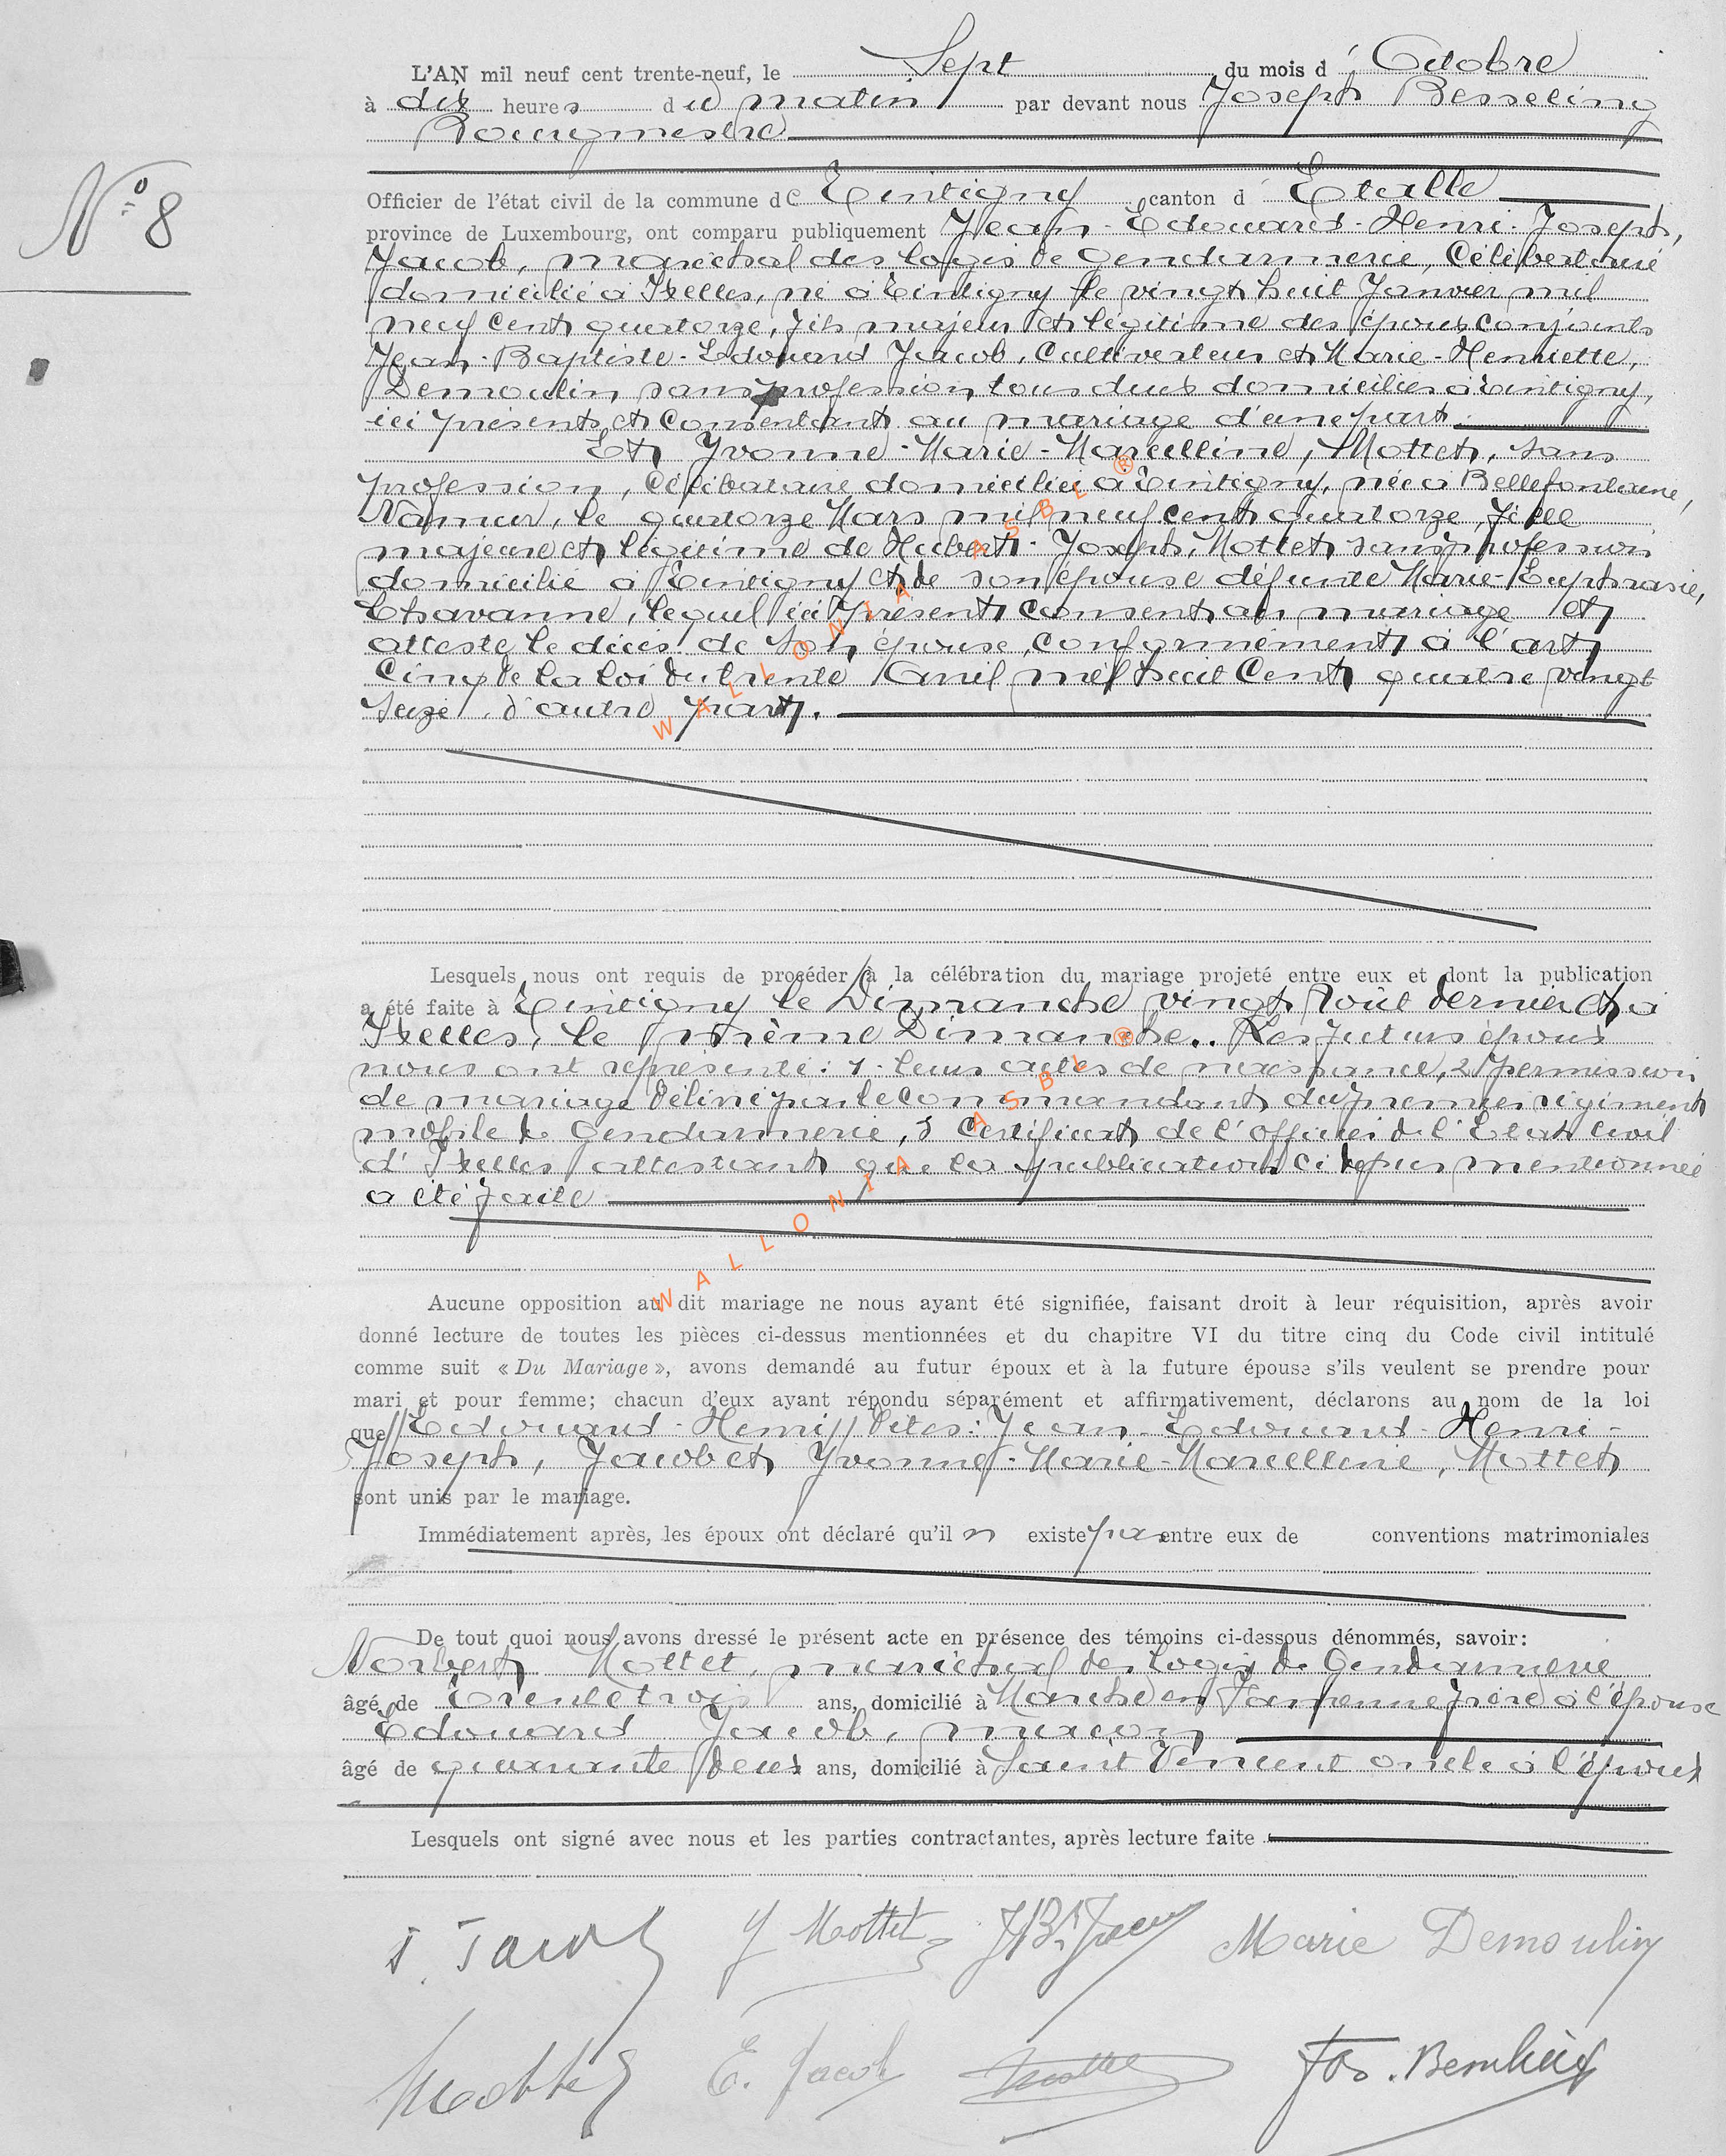 L'AN mil neuf cent trente-neuf, le Sept du mois d' Octobre
à dix heures du matin par devant nous Joseph Besseling
Bourgmestre
N° 8
Officier de l'état civil de la commune de Tintigny canton d' Etalle
province de Luxembourg, ont comparu publiquement Jean-Edouard-Henri-Joseph,
Jacob, maréchal des logis de gendarmerie, Célibataire
domicilié à Ixelles, né à Tintigny le vingt huit Janvier mil
neuf cent quatorze, fils majeur et légitime des époux conjoints
Jean-Baptiste-Edouard Jacob, Cultivateur et Marie-Henriette,
Demoulin, sans profession, tous deux domiciliés à Tintigny,
ici présents et consentant au mariage d'une part.
Et Yvonne-Marie-Marcelline, Mottet, sans
profession, Célibataire domiciliée à Tintigny, née à Bellefontaine,
Namur, le quatorze Mars mil neuf cent quatorze, fille
majeure et légitime de Hubert-Joseph, Mottet, sans profession
domicilié à Tintigny et de son épouse défunte Marie-Euphrasie,
Chavanne, lequel ici présent consent au mariage et
atteste le décès de son épouse, conformément à l'art
Cinq de la loi du trente Avril mil huit Cent quatre vingt
Seize, d'autre part.
Lesquels nous ont requis de procéder à la célébration du mariage projeté entre eux et dont la publication
a été faite à Tintigny le Dimanche vingt Août dernier et à
Ixelles, le même Dimanche.. Les futurs époux
nous ont représenté: 1. leurs actes de naissance, 2 permission
de mariage délivré par le commandant du premier régiment
mobile de Gendarmerie, 3 Certificat de l'officier de l'Etat civil
d'Ixelles attestant que la publication ci dessus mentionnée
a été faite
Aucune opposition au dit mariage ne nous ayant été signifiée, faisant droit à leur réquisition, après avoir
donné lecture de toutes les pièces ci-dessus mentionnées et du chapitre VI du titre cinq du Code civil intitulé
comme suit « Du Mariage », avons demandé au futur époux et à la future épouse s'ils veulent se prendre pour
mari et pour femme; chacun d'eux ayant répondu séparément et affirmativement, déclarons au nom de la loi
que // Edouard-Henri // Dites: Jean-Edouard-Henri-
Joseph, Jacob et Yvonne-Marie-Marcelline, Mottet
sont unis par le mariage.
Immédiatement après, les époux ont déclaré qu'il n existe pas entre eux de conventions matrimoniales
De tout quoi nous avons dressé le présent acte en présence des témoins ci-dessous dénommés, savoir:
Norbert Mottet, maréchal des logis de Gendarmerie
âgé de trente trois ans, domicilié à Marche en Famenne frère à l'épouse
Edouard Jacob, maçon
âgé de quarante deux ans, domicilié à Saint Vincent oncle à l'époux
Lesquels ont signé avec nous et les parties contractantes, après lecture faite
J. Jacob Y Mottet JBt Jacob Marie Demoulin
Mottet E. Jacob Mottet Jos. Besseling
WALLONIA ASBL ®
WALLONIA ASBL ®